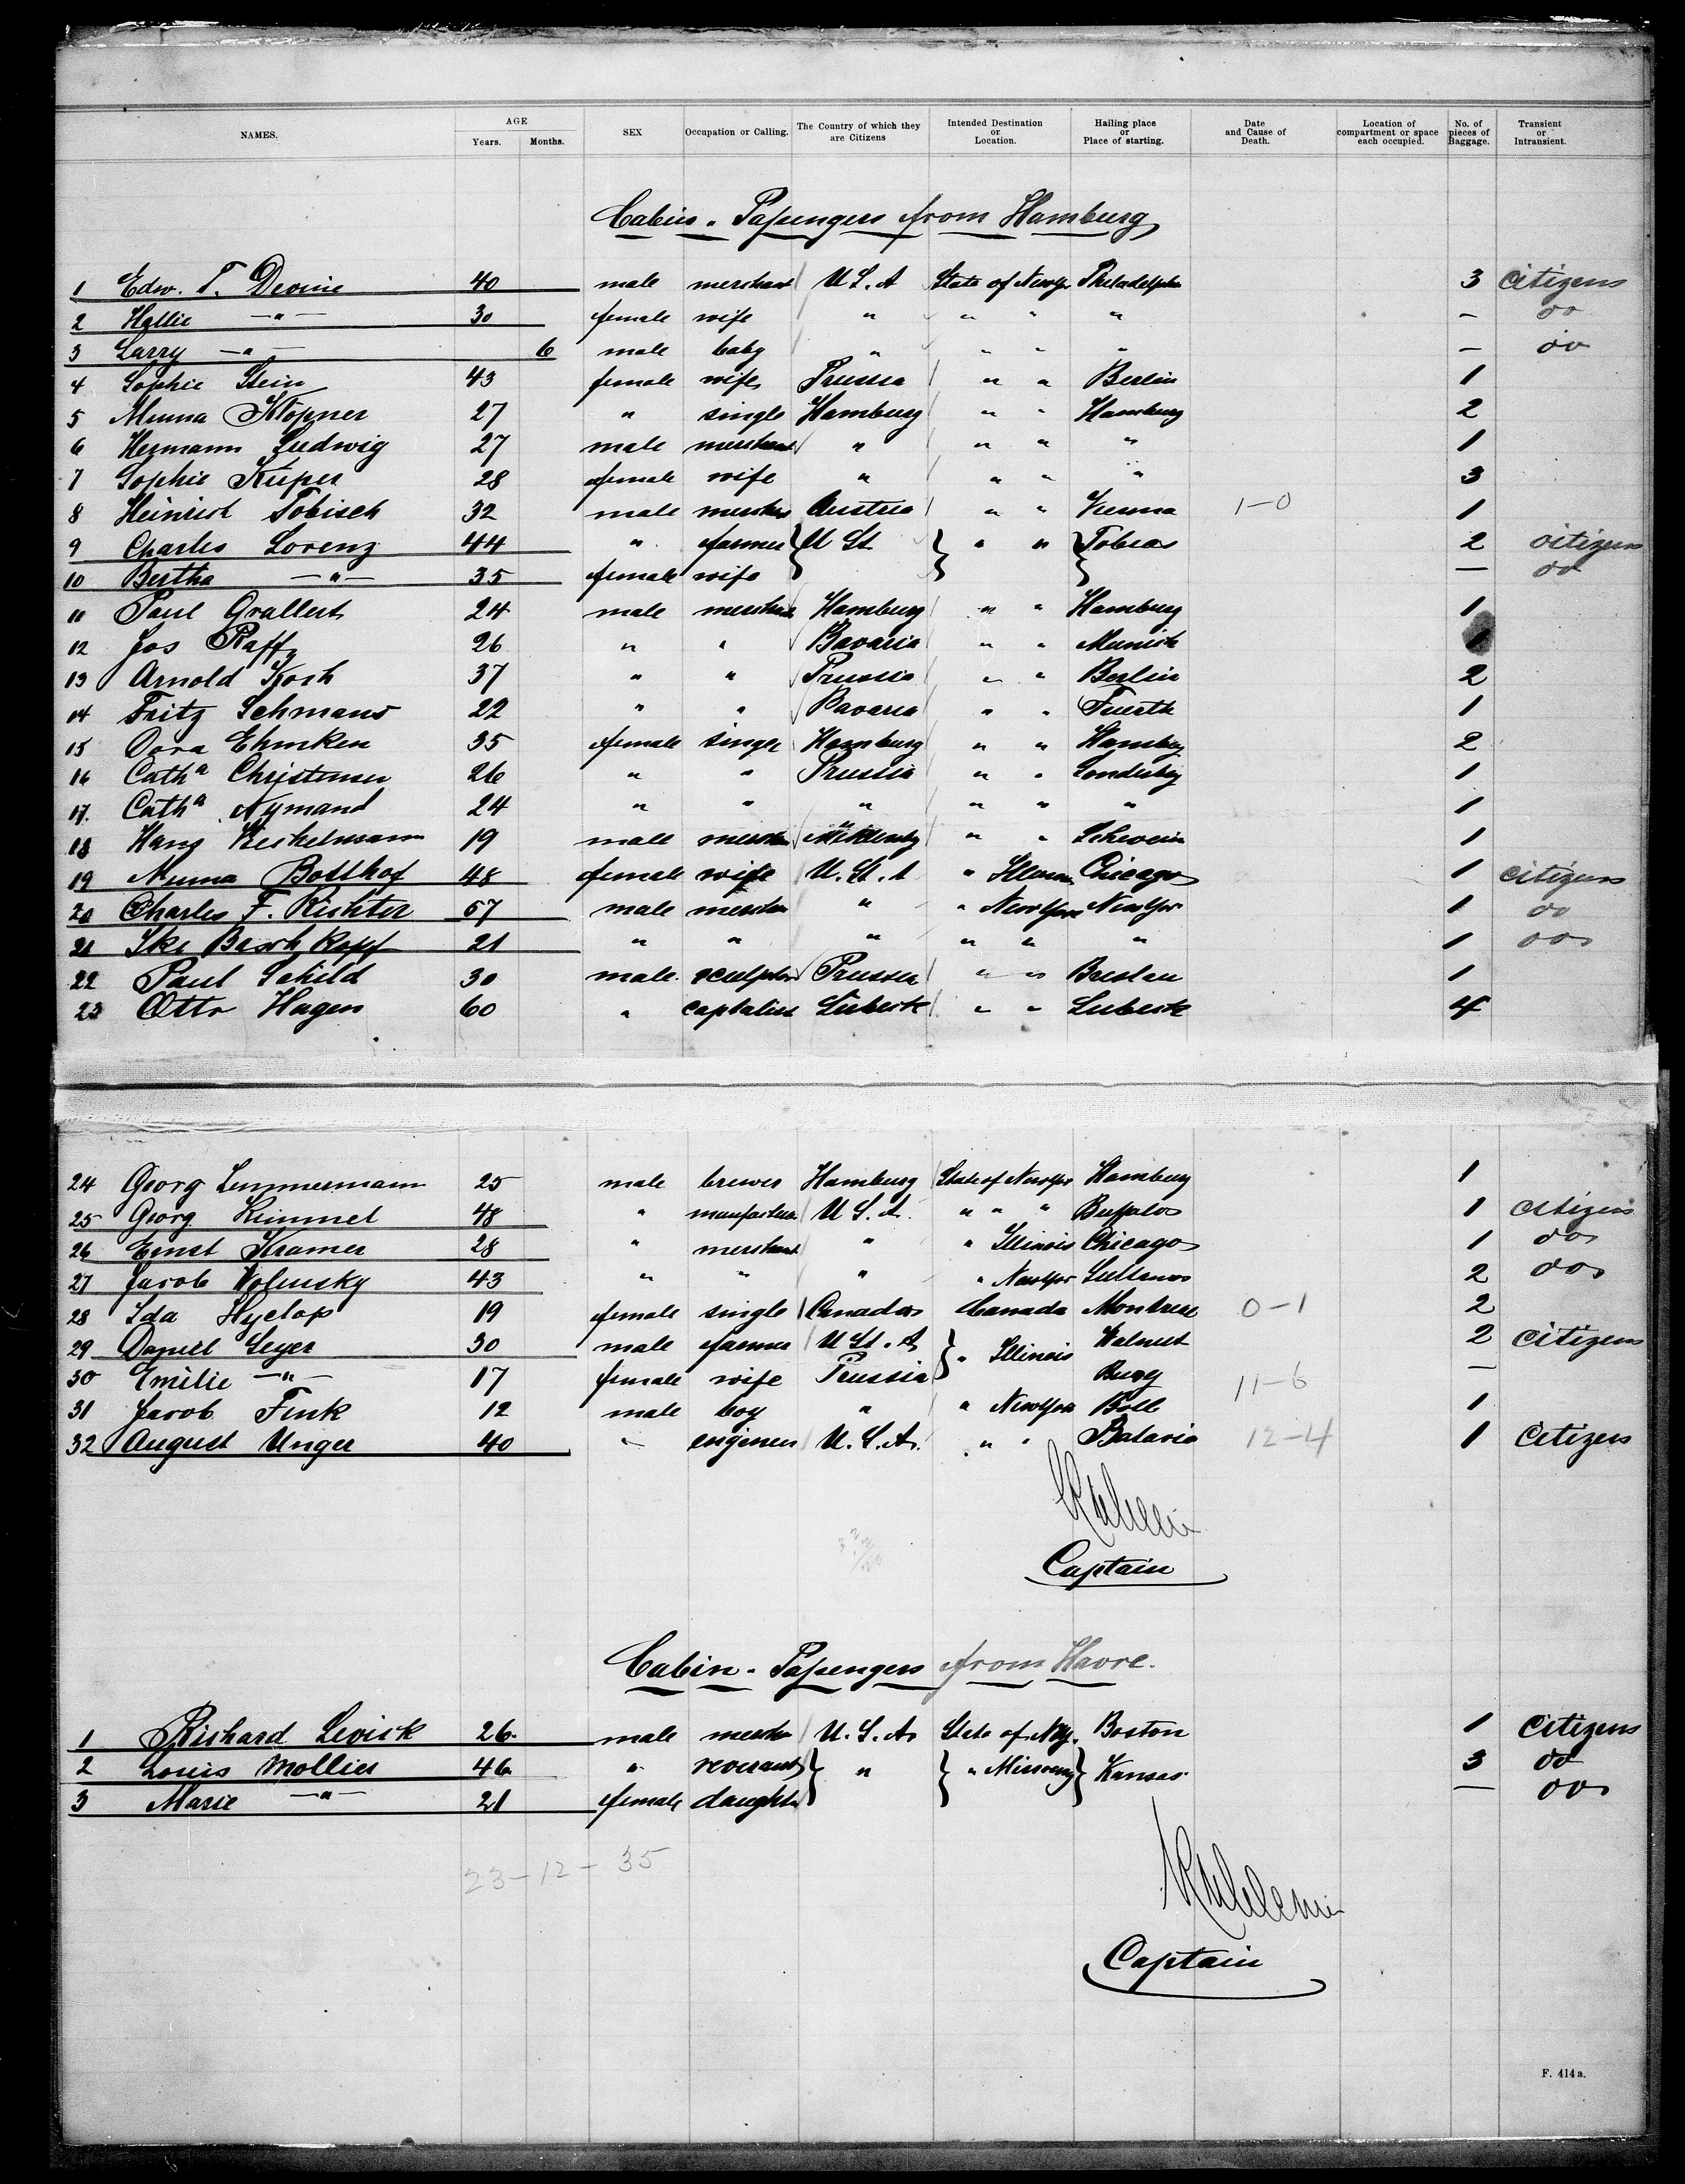 NAMES. AGE Years. Months. SEX Occupation or Calling. The Country of which they are Citizens Intended Destination or Location. Hailing place or Place of starting. Date and Cause of Death. Location of compartment or space each occupied. No. of pieces of Baggage. Transient or Intransient.
Cabin-Passengers from Hamburg
1 Edw. T. Devine 40 male merchant U.S.A State of New York Philadelphia 3 citizens
2 Hallie —"— 30 female wife " " " " — do
3 Larry —"— 6 male baby " " " " — do
4 Sophie Stein 43 female wife Prussia " " Berlin 1
5 Minna Klopner 27 " single Hamburg " " Hamburg 2
6 Hermann Ludwig 27 male merchant " " " " 1
7 Sophie Küper 28 female wife " " " " 3
8 Heinrich Tobisch 32 male merchant Austria " " Vienna 1-0 1
9 Charles Lorenz 44 " farmer U St. " " Tobias 2 citizens
10 Bertha —"— 35 female wife — do
11 Paul Grallert 24 male merchant Hamburg " " Hamburg 1
12 Jos Raff 26 " " Bavaria " " Munich 1
13 Arnold Koch 37 " " Prussia " " Berlin 2
14 Fritz Schmans 22 " " Bavaria " " Fuerth 1
15 Dora Ehmken 35 female single Hamburg " " Hamburg 2
16 Cath^a Christensen 26 " " Prussia " " 1
17. Cath^a Nymand 24 " " " " " " 1
18 Hans 19 male merchant " " Schwerin 1
19 Minna Botthof 48 female wife U.St.A " Illinois Chicago 1 citizens
20 Charles F. Richter 57 male merchant " " New York New York 1 do
21 Ike 21 " " " " " " 1 do
22 Paul Schild 30 male sculptor Prussia " " Breslau 1
23 Otto Hagen 60 " capitalist Lübeck " " Lubeck 4
24 Georg Lemmermann 25 male brewer Hamburg State of New York Hamburg 1
25 Georg Kimmel 48 " manufacturer U.S.A. " " " Buffalo 1 citizens
26 Ernst Kramer 28 " merchant " " Illinois Chicago 1 do
27 Jacob Wolinsky 43 " " " " New York 2 do
28 Ida Hyslop 19 female single Canada Canada Montreal 0-1 2
29 Daniel Leyer 30 male farmer U St. A " Illinois Walnut 2 citizens
30 Emilie —"— 17 female wife Prussia Burg 11-6 —
31 Jacob Fink 12 male boy " " New York Boll 1
32 August Unger 40 " engineer U.S.A. " " Batavia 12-4 1 Citizens
Captain
Cabin-Passengers from Havre.
1 Richard Levick 26. male merchant U.S.A. State of N.Y. Boston 1 citizens
2 Louis Mollier 46 " " " Missoury Kansas 3 do
3 Marie —"— 21 female daughter — do
23-12-35
Captain
F. 414a.